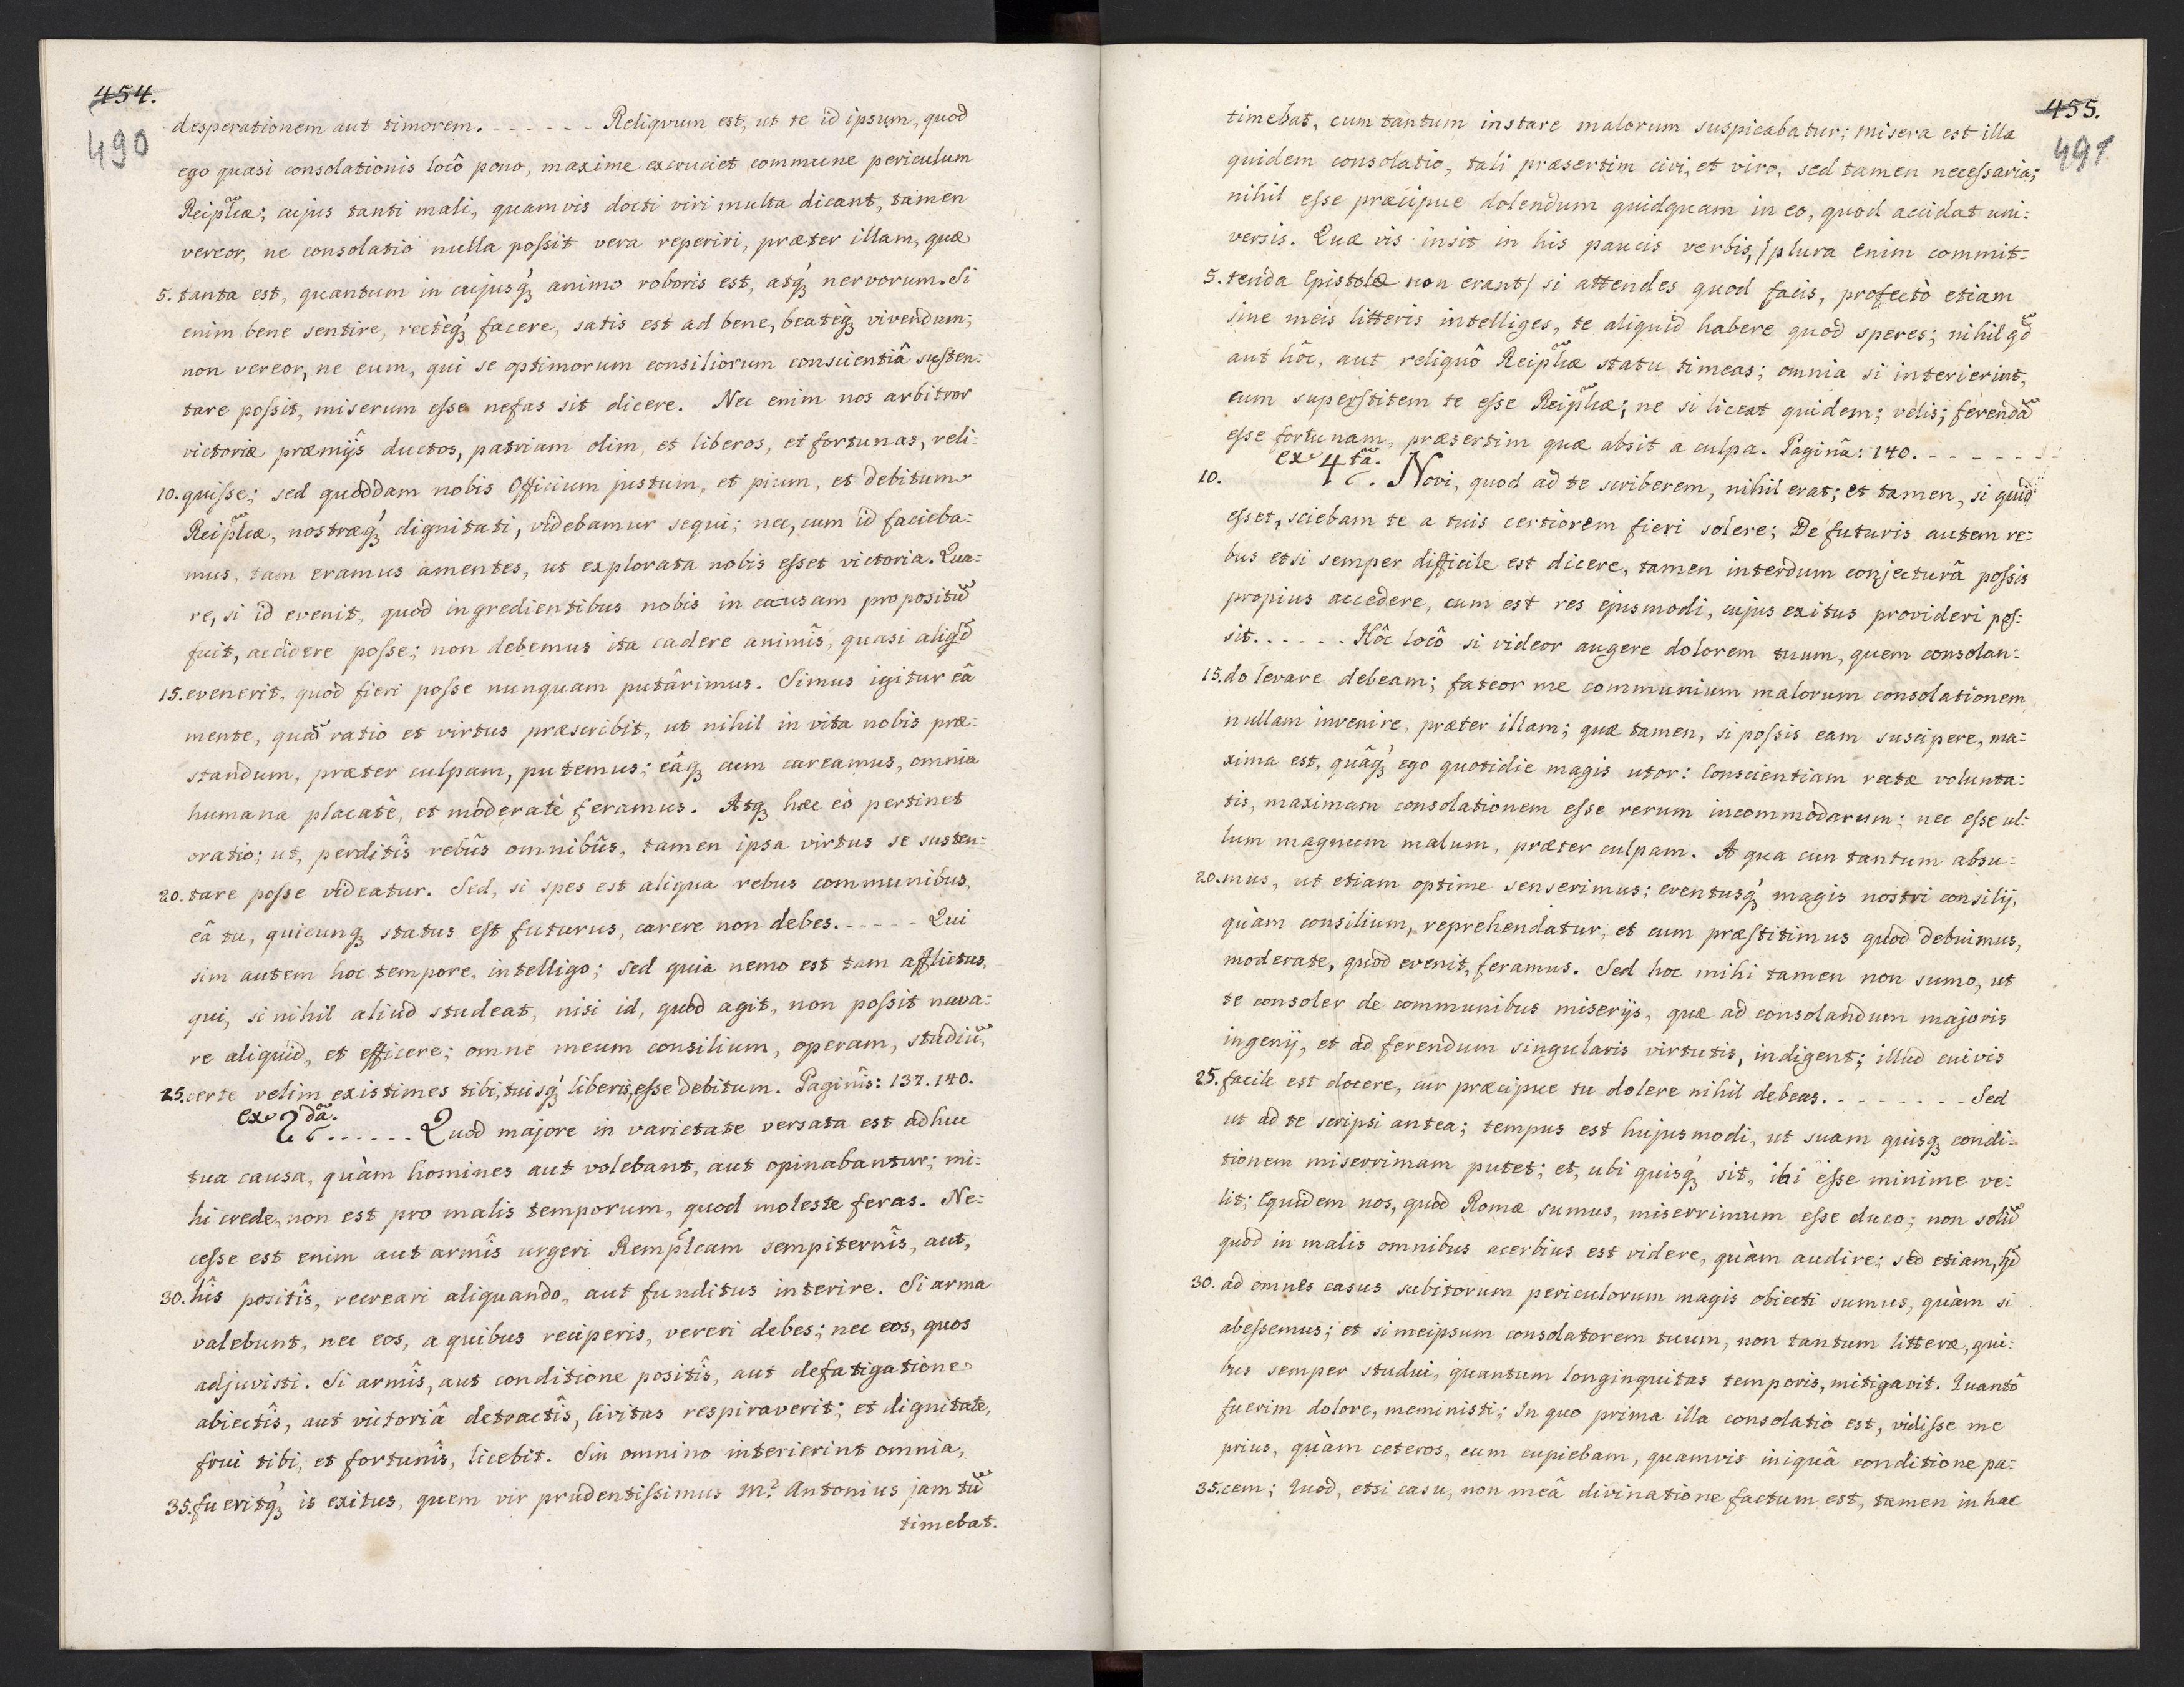 454.
490
desperationem aut timorem. - - - - - - Reliqvum est, ut te id ipsum, quod
ego quasi consolationis locô pono, maxime excruciet commune periculum
Reiplicæ; cujus tanti mali, quamvis docti viri multa dicant, tamen
vereor, ne consolatio nulla poſsit vera reperiri, præter illam, quæ
5. tanta est, quantum in cujusq́ꝫ animo roboris est, atq́ꝫ nervorum. Si
enim bene sentire, rectèq́ꝫ facere, satis est ad bene, beatèqꝫ vivendum;
non vereor, ne eum, qui se optimorum consiliorum conscientiâ susten:
tare poſsit, miserum eſse nefas sit dicere. Nec enim nos arbitror
victoriæ præmijs ductos, patriam olim, et liberos, et fortunas, reli:
10. quiſse; sed quoddam nobis Officium justum, et pium, et debitum
Reiplicæ, nostræq́ꝫ dignitati, videbamur sequi; nec, cum id facieba:
mus, tam eramus amentes, ut explorata nobis eſset victoria. Qua:
re, si id evenit, quod ingredientibus nobis in causam propositũ
fuit, accidere poſse; non debemus ita cadere animîs, quasi aliqd̃
15. evenerit, quod fieri poſse nunquam putârimus. Simus igitur eâ
mente, quã ratio et virtus præscribit, ut nihil in vita nobis præ:
standum, præter culpam, putemus; eâqꝫ cum careamus, omnia
humana placatè, et moderatè feramus. Atqꝫ hæc eò pertinet
oratio; ut, perditîs rebûs omnibûs, tamen ipsa virtus se susten:
20. tare poſse videatur. Sed, si spes est aliqua rebus communibus,
eâ tu, quicunqꝫ status est futurus, carere non debes. - - - - - Qui
sim autem hoc tempore, intelligo; sed quia nemo est tam afflictus,
qui, si nihil aliud studeat, nisi id, quod agit, non poſsit nava:
re aliquid, et efficere; omne meum consilium, operam, studiũ,
25. certe velim existimes tibi, tuisq́ꝫ liberis, eſse debitum. Paginîs: 137. 140.
ex 2dã. . . . . . . Quod majore in varietate versata est adhuc
tua causa, quàm homines aut volebant, aut opinabantur; mi:
hi crede, non est pro malis temporum, quod moleste feras. Ne:
ceſse est enim aut armîs urgeri Remplcam sempiternîs, aut,
30. hîs positîs, recreari aliquando, aut funditus interire. Si arma
valebunt, nec eos, a quibus reciperis, vereri debes; nec eos, quos
adjuvisti. Si armîs, aut conditione positîs, aut defatigatione
abiectîs, aut victoriâ detractîs, Civitas respiraverit; et dignitate,
frui tibi, et fortunîs, licebit. Sin omnino interierint omnia,
35. fueritq́ꝫ is exitus, quem vir prudentiſsimus M? Antonius jam tũ
timebat.
455.
491
timebat, cum tantum instare malorum suspicabatur; misera est illa
quidem consolatio, tali præsertim civi, et viro, sed tamen neceſsaria;
nihil eſse præcipue dolendum quidquam in eo, quod accidat uni:
versis. Quæ vis insit in his paucis verbis, /plura enim commit:
5. tenda Epistolæ non erant/ si attendes quod facis, profectò etiam
sine meis litteris intelliges, te aliquid habere quod speres; nihil qd̃
aut hôc, aut reliquô Reiplicæ statu timeas; omnia si interierint,
cum superstitem te eſse Reiplicæ; ne si liceat quidem; velis; ferendã
eſse fortunam, præsertim quæ absit a culpa. Paginâ: 140. - - - - - - -
10. ex 4tã. Novi, quod ad te scriberem, nihil erat; et tamen, si quid
eſset, sciebam te a tuis certiorem fieri solere; De futuris autem re:
bus etsi semper difficile est dicere, tamen interdum conjecturâ poſsis
propius accedere, cum est res ejusmodi, cujus exitus provideri poſ:
sit. - - - - - Hôc locô si videor augere dolorem tuum, quem consolan:
15. do levare debeam; fateor me communium malorum consolationem
nullam invenire, præter illam; quæ tamen, si poſsis eam suscipere, ma:
xima est, quâq́ꝫ ego quotidie magis utor: Conscientiam rectæ volunta:
tis, maximam consolationem eſse rerum incommodarum; nec eſse ul:
lum magnum malum, præter culpam. A qua cun tantum absu:
20. mus, ut etiam optime senserimus; eventusq́ꝫ magis nostri consilij,
quàm consilium, reprehendatur, et cum præstitimus quod debuimus,
moderate, quod evenit, feramus. Sed hoc mihi tamen non sumo, ut
te consoler de communibus miserijs, quæ ad consolandum majoris
ingenij, et ad ferendum singularis virtutis, indigent; illud cuivis
25. facile est docere, cur præcipue tu dolere nihil debeas. - - - - - - - - Sed
ut ad te scripsi antea; tempus est hujusmodi, ut suam quisqꝫ condi:
tionem miserrimam putet; et, ubi quisq́ꝫ sit, ibi eſse minime ve:
lit; Equidem nos, quod Romæ sumus, miserrimum eſse duco; non solũ
quod in malis omnibus acerbius est videre, quàm audire; sed etiam, qd̃
30. ad omnes casus subitorum periculorum magis obiecti sumus, quàm si
abeſsemus; et si meipsum consolatorem tuum, non tantum litteræ, qui:
bus semper studui, quantum longinquitas temporis, mitigavit. Quantô
fuerim dolore, meministi; In quo prima illa consolatio est, vidiſse me
prius, quàm ceteros, cum cupiebam, quamvis iniquâ conditione pa:
35. cem; Quod, etsi casu, non meâ divinatione factum est, tamen in hac